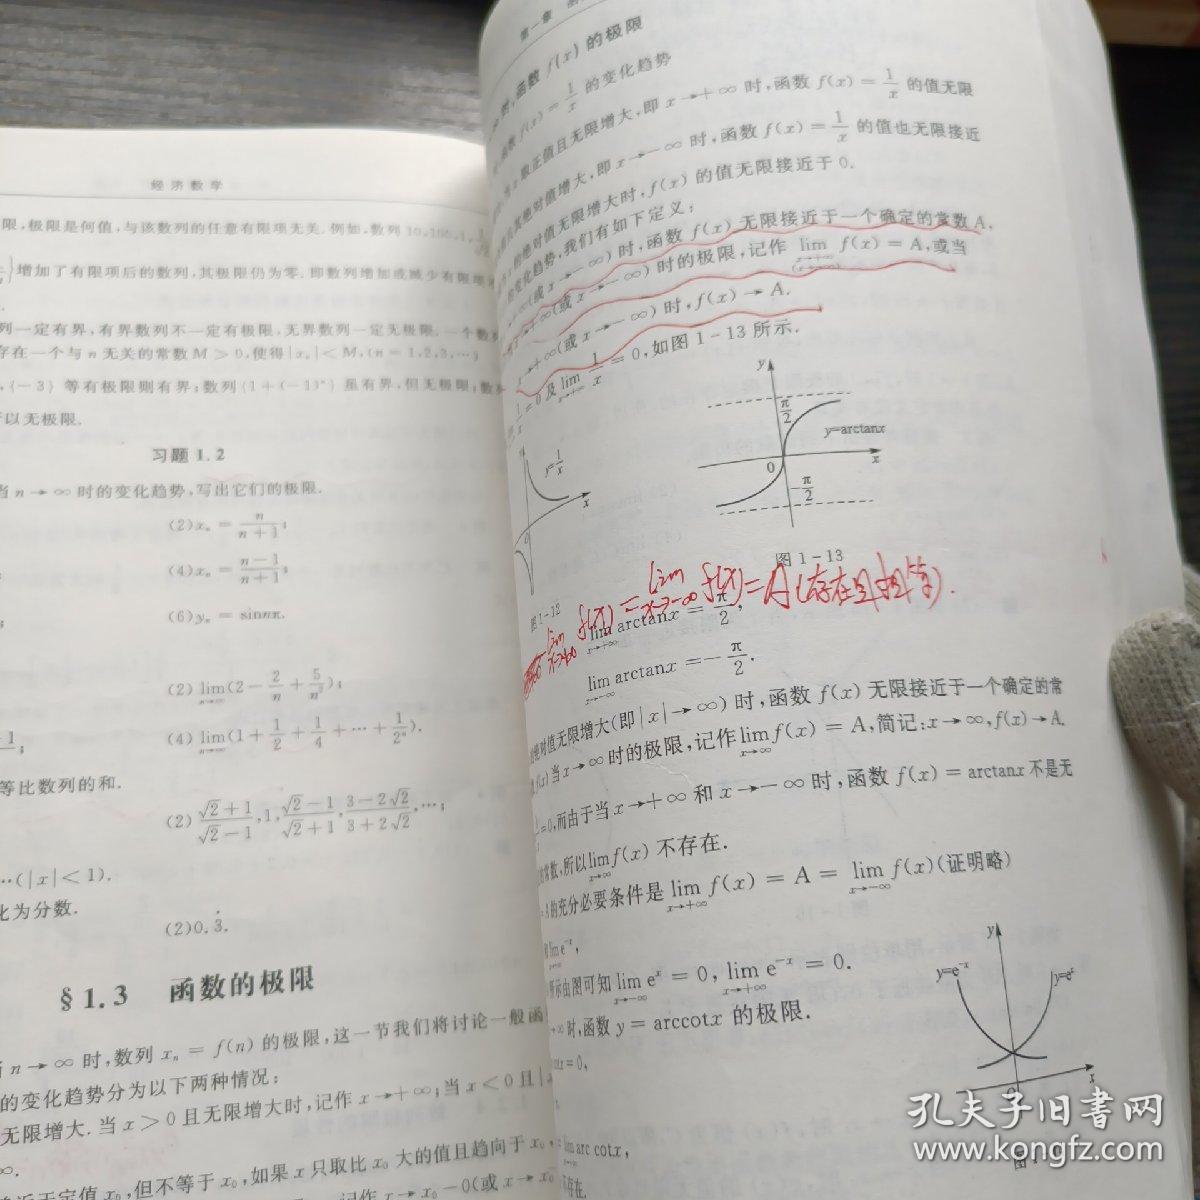 经济数学
限,极限是何值,与该数列的任意有限项无关.例如,数列10,100,1,
增加了有限项后的数列,其极限仍为零.即数列增加或减少有限项
列一定有界,有界数列不一定有极限,无界数列一定无极限.一个数
存在一个与n无关的常数M>0,使得|xₙ|<M,(n=1,2,3,⋯)
等有极限则有界;数列{1+(-1)ⁿ}虽有界,但无极限;数
以无极限.
习题1.2
当n→∞时的变化趋势,写出它们的极限.
(2)xₙ=n/(n+1);
(4)xₙ=(n-1)/(n+1);
(6)yₙ=sinnπ.
(2)lim n→∞ (2-2/n+5/n²);
(4)lim n→∞ (1+1/2+1/4+⋯+1/2ⁿ).
等比数列的和.
(2)(√2+1)/(√2-1),1,(√2-1)/(√2+1),(3-2√2)/(3+2√2),⋯;
⋯(|x|<1).
化为分数.
(2)0.3̇.
§1.3 函数的极限
n→∞时,数列xₙ=f(n)的极限,这一节我们将讨论一般函
的变化趋势分为以下两种情况:
无限增大.当x>0且无限增大时,记作x→+∞;当x<0且|
∞.
x₀,但不等于x₀,如果x只取比x₀大的值且趋向于x₀,
记作x→x₀-0(或x→x₀
第一章
时,函数f(x)的极限
函数f(x)=1/x的变化趋势
x取正值且无限增大,即x→+∞时,函数f(x)=1/x的值无限
其绝对值增大,即x→-∞时,函数f(x)=1/x的值也无限接近
的绝对值无限增大时,f(x)的值无限接近于0.
变化趋势,我们有如下定义:
+∞(或x→-∞)时,函数f(x)无限接近于一个确定的常数A,
→+∞(或x→-∞)时的极限,记作lim x→+∞ (x→-∞) f(x)=A,或当
x→+∞(或x→-∞)时,f(x)→A.
1/x=0及lim x→+∞ 1/x=0,如图1-13所示.
y=1/x
x
y
π/2
y=arctanx
0
x
-π/2
图1-12
图1-13
lim x→+∞ f(x)=lim x→-∞ f(x)=A(存在且相等).
lim x→+∞ arctanx=π/2,
lim x→-∞ arctanx=-π/2.
绝对值无限增大(即|x|→∞)时,函数f(x)无限接近于一个确定的常
f(x)当x→∞时的极限,记作lim x→∞ f(x)=A,简记:x→∞,f(x)→A.
=0,而由于当x→+∞和x→-∞时,函数f(x)=arctanx不是无
常数,所以lim x→∞ f(x)不存在.
=A的充分必要条件是lim x→+∞ f(x)=A=lim x→-∞ f(x)(证明略)
lim e⁻ˣ,
所示由图可知lim x→-∞ eˣ=0,lim x→+∞ e⁻ˣ=0.
时,函数y=arccotx的极限.
cotx=0,
lim arc cotx,
不存在.
y
y=e⁻ˣ
y=eˣ
x
孔夫子旧书网
www.kongfz.com